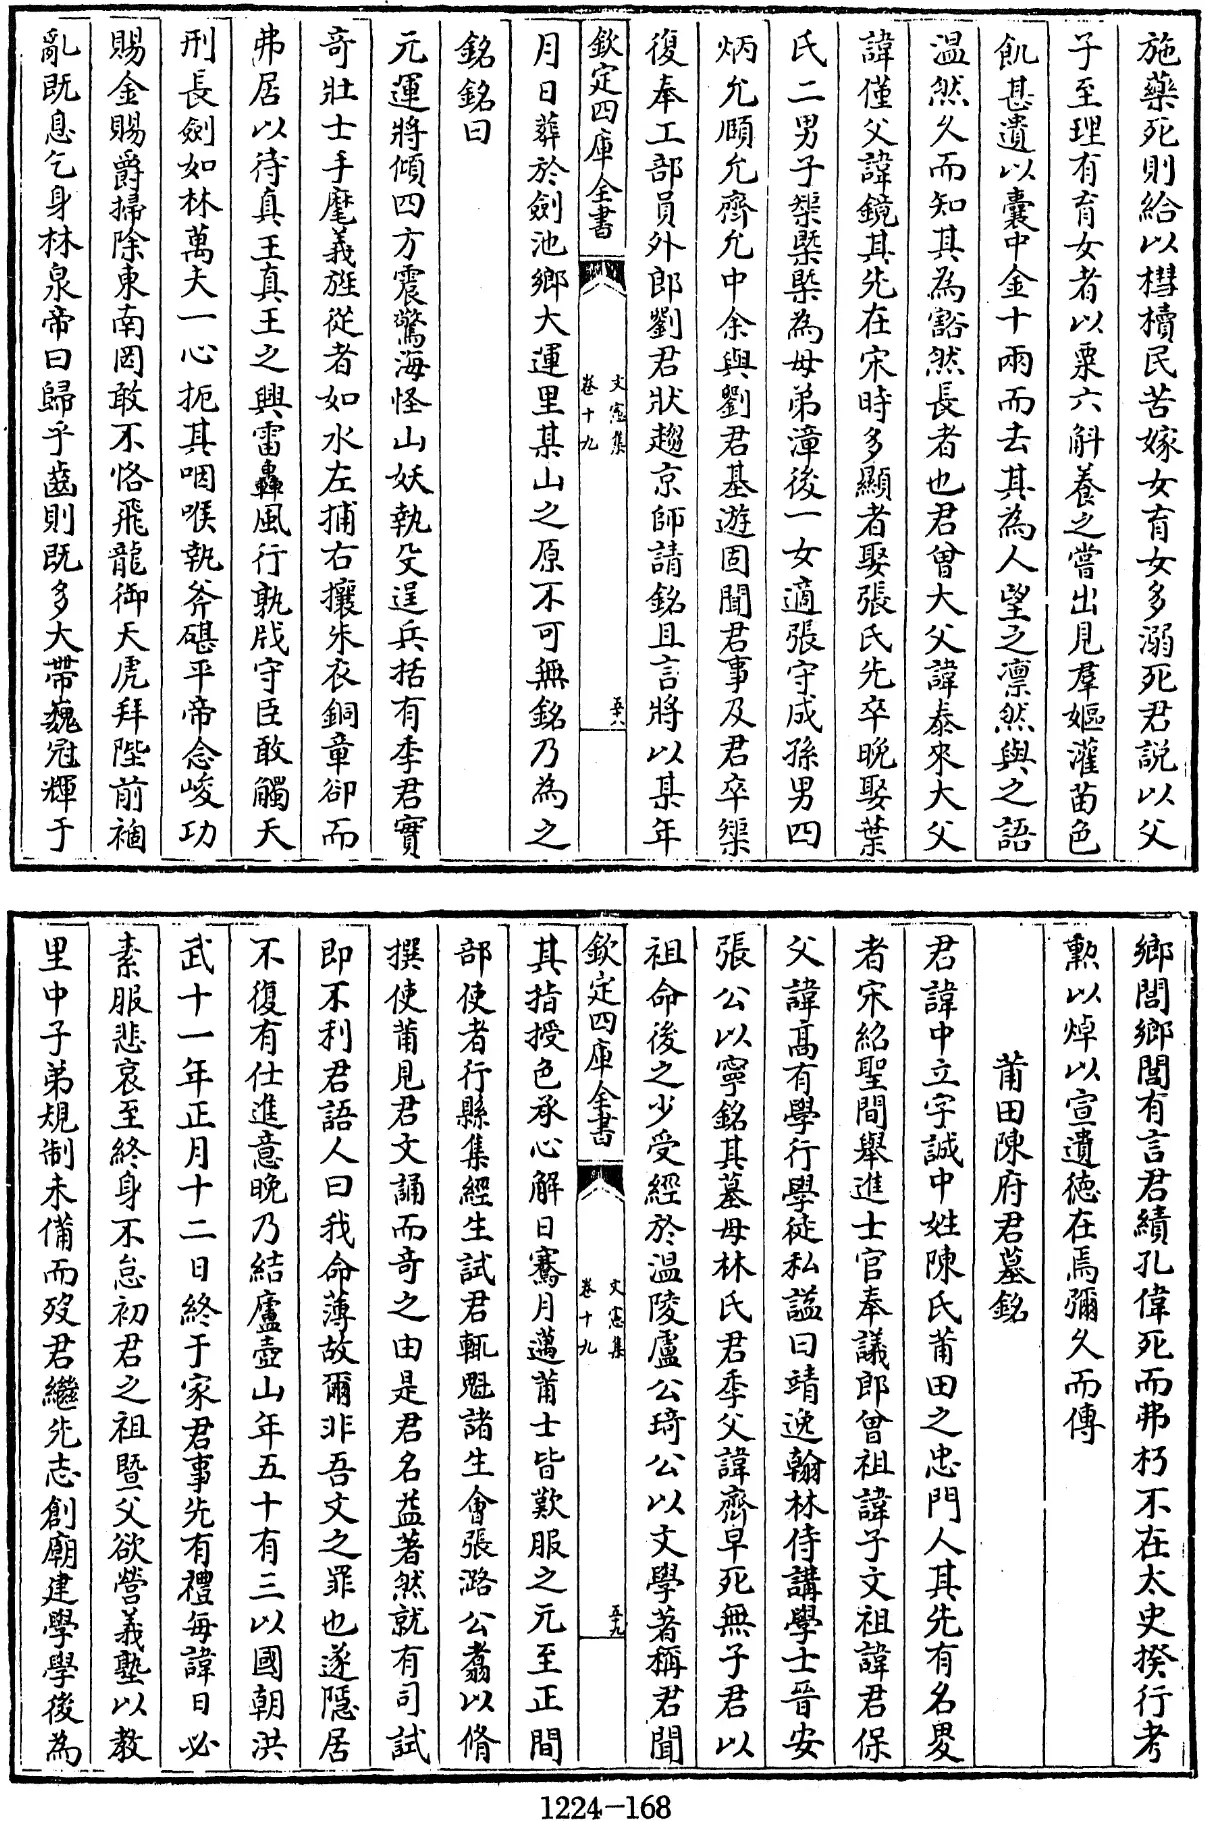 施藥死則給以槥櫝民苦嫁女育女多溺死君説以父
子至理有育女者以粟六斛養之嘗出見羣嫗灌苗色
飢甚遺以囊中金十兩而去其為人望之凛然與之語
温然久而知其為豁然長者也君曾大父諱泰來大父
諱僅父諱鏡其先在宋時多顯者娶張氏先卒晩娶葉
氏二男子榘槩槩為母弟漳後一女適張守成孫男四
炳允頤允齊允中余與劉君基遊固聞君事及君卒榘
復奉工部員外郎劉君狀趨京師請銘且言將以某年
欽定四庫全書
文憲集
卷十九
五十八
月日葬於劍池鄉大運里某山之原不可無銘乃為之
銘銘曰
元運將傾四方震驚海怪山妖執殳逞兵括有季君實
竒壯士手麾義旌從者如水左捕右攘朱衣銅章卻而
弗居以待真王真王之興雷轟風行孰戕守臣敢觸天
刑長劍如林萬夫一心扼其咽喉執斧碪平帝念峻功
賜金賜爵掃除東南罔敢不恪飛龍御天虎拜陛前禍
亂既息乞身林泉帝曰歸乎齒則既多大帶巍冠輝于
鄉閭鄉閭有言君績孔偉死而弗朽不在太史揆行考
勲以焯以宣遺徳在焉彌久而傳
莆田陳府君墓銘
君諱中立字誠中姓陳氏莆田之忠門人其先有名畟
者宋紹聖間舉進士官奉議郎曾祖諱子文祖諱君保
父諱髙有學行學徒私諡曰靖逸翰林侍講學士晉安
張公以寧銘其墓母林氏君季父諱齊早死無子君以
祖命後之少受經於温陵盧公琦公以文學著稱君聞
欽定四庫全書
文憲集
卷十九
五十九
其指授色承心解日騫月邁莆士皆歎服之元至正間
部使者行縣集經生試君輒魁諸生會張潞公翥以脩
撰使莆見君文誦而竒之由是君名益著然就有司試
即不利君語人曰我命薄故爾非吾文之罪也遂隱居
不復有仕進意晩乃結廬壺山年五十有三以國朝洪
武十一年正月十二日終于家君事先有禮每諱日必
素服悲哀至終身不怠初君之祖曁父欲營義塾以教
里中子弟規制未備而歿君繼先志創廟建學學後為
1224-168